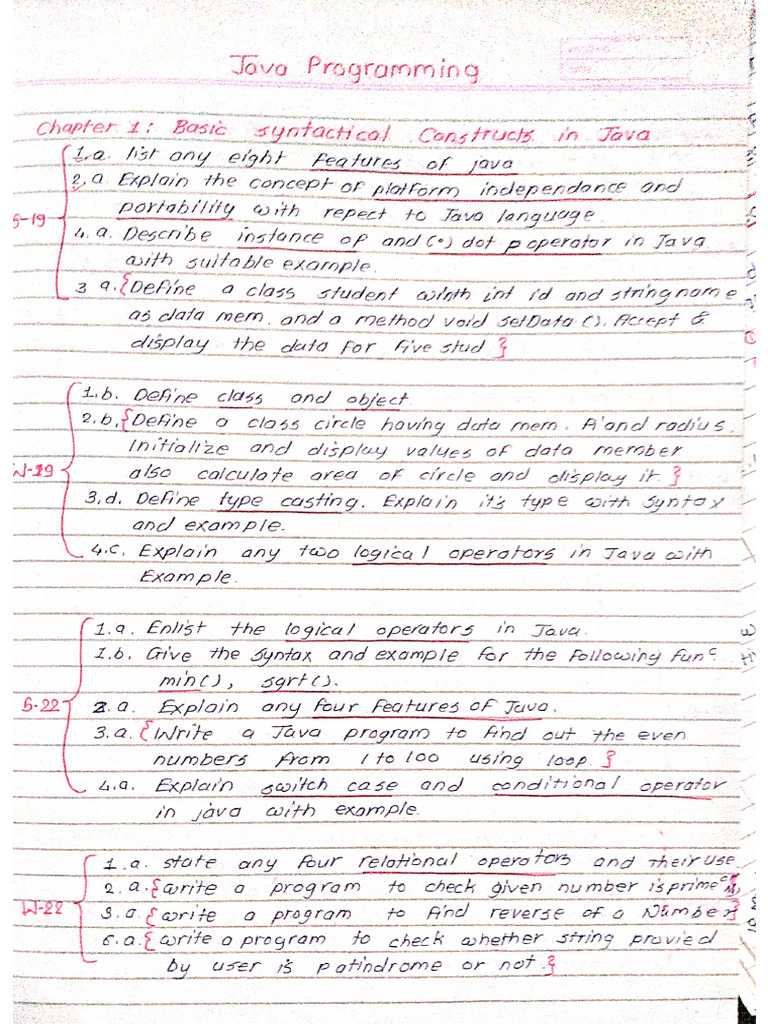 Java Programming
Chapter 1: Basic syntactical Constructs in Java
1.a. list any eight features of java
2.a Explain the concept of platform independance and
portability with repect to Java language.
S-19
4.a. Describe instance of and (•) dot p operator in Java
with suitable example.
3 a. {Define a class student winth int id and string name
as data mem. and a method void setData(). Accept &
display the data for five stud }
1.b. Define class and object
2.b. {Define a class circle having data mem. A and radius.
Initialize and display values of data member
W-19
also calculate area of circle and display it }
3.d. Define type casting. Explain it's type with syntax
and example.
4.c. Explain any two logical operators in Java with
Example.
1.a. Enlist the logical operators in Java.
1.b. Give the syntax and example for the following func
min(), sqrt().
S-22
2.a. Explain any four features of Java.
3.a. {Write a Java program to find out the even
numbers from 1 to 100 using loop. }
4.a. Explain switch case and conditional operator
in java with example.
1.a. state any four relational operators and their use
2.a. {write a program to check given number is prime
W-22
3.a. {write a program to find reverse of a Number}
6.a. {write a program to check whether string provied
by user is patindrome or not. }